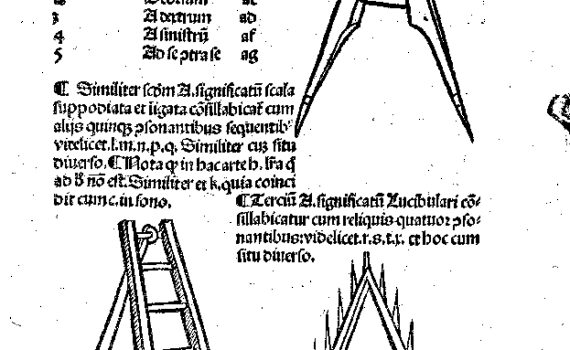 3 Adextrum ad
4 Asinistrũ af
5 Ad se ptrase ag
¶ Similiter scõm A. significatũ scala
suppodiata et ligata cõsillabicat̃ cum
alijs quinqꝫ ꝯsonantibus sequentibꝰ
videlicet.l.m.n.p.q. Similiter cuꝫ situ
diuerso. ¶ Nota ꝙ in hac arte h. lr̃a q̃
ad B nõ est. Similiter et k. quia coinci
dit cum c. in sono.
¶ Terciũ A. significatũ Lucibulari cõ⸗
sillabicatur cum reliquis quatuor ꝯso⸗
nantibus: videlicet.r.s.t.x. et hoc cum
situ diuerso.